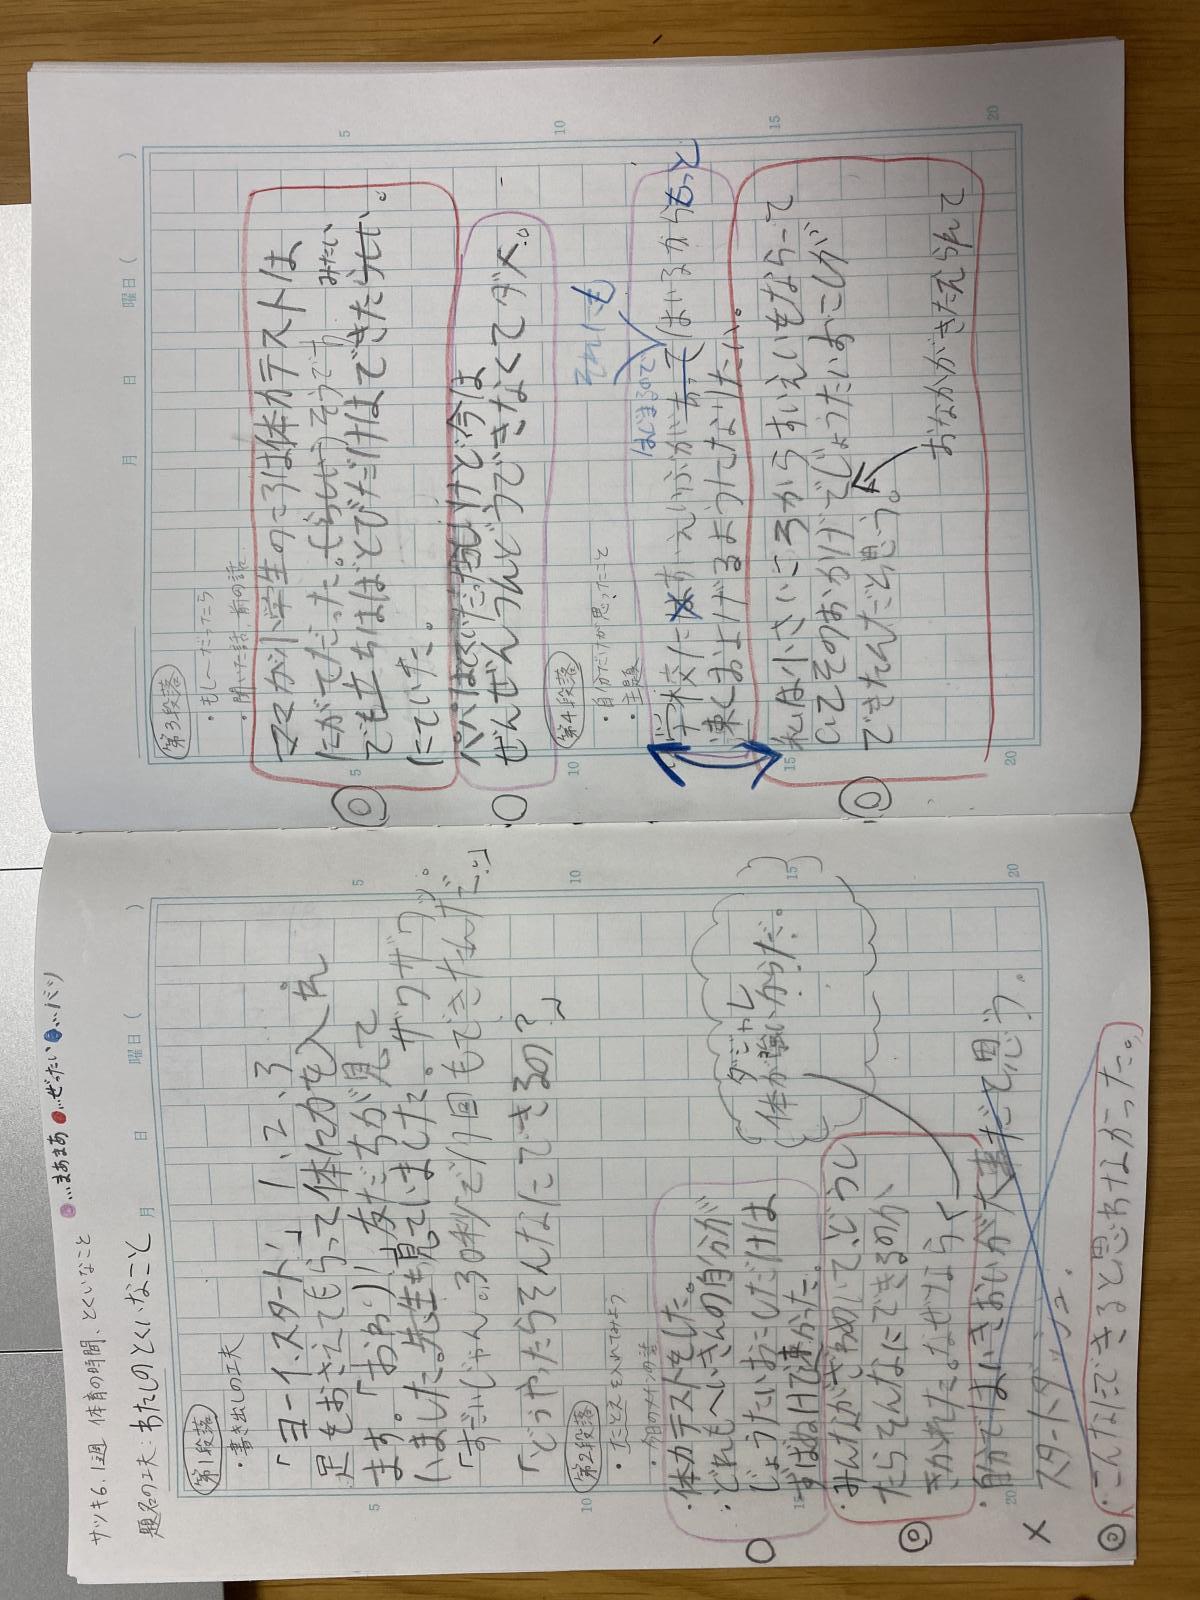 サツキ6.1週 体育の時間、とくいなこと
●…まあまあ ●…ぜったい ●…バツ
題名の工夫:わたしのとくいなこと
月 日 曜日( )
第1段落
・書き出しの工夫
「ヨーイ、スタート」1、2、3
足をおさえてもらって体に力を入れ
ます。「おわり!」友だちが見て
いました。先生も見ていました。ザワザワ。
「すごいじゃん。30秒で
回もできたんだ。」
「どうやったらそんなにできるの?」
第2段落
・たとえを入れてみよう
・今日のメインの話
・体力テストをした。
・どれもへいきんの自分が
じょうたいおこしだけは
ずばぬけて凍かった。
・みんながざわめいて、どうし
たらそんなにできるのか、
きかれた。なぜなら、
ダジャレ
体が強いからだ。
・自分ではいきおいが大事だと思う。
スタートダッシュ。
・こんなにできると思わなかった。
5
10
15
20
月 日 曜日( )
第3段落
・もし~だったら
・聞いた話、前の話
ママが小学生のころは体力テストは
にがてだった。(らしい)そうです
みたい
でも立ちはばとびだけはできたらしい。
にていた。
パパはとくいだったけど今は
ぜんぜんうんどうできなくてダメ。
第4段落
・自分だけが思ったこと
・主題
それに
プール
はじまるので
学校にはすえいぶがあってはいるからもっと
凍くおよげるようになりたい。
私は小さいころからすいえいもならって
いてそのおかげでじょうたいおこしが
できたんだと思う。
おなかがきたえられて
5
10
15
20